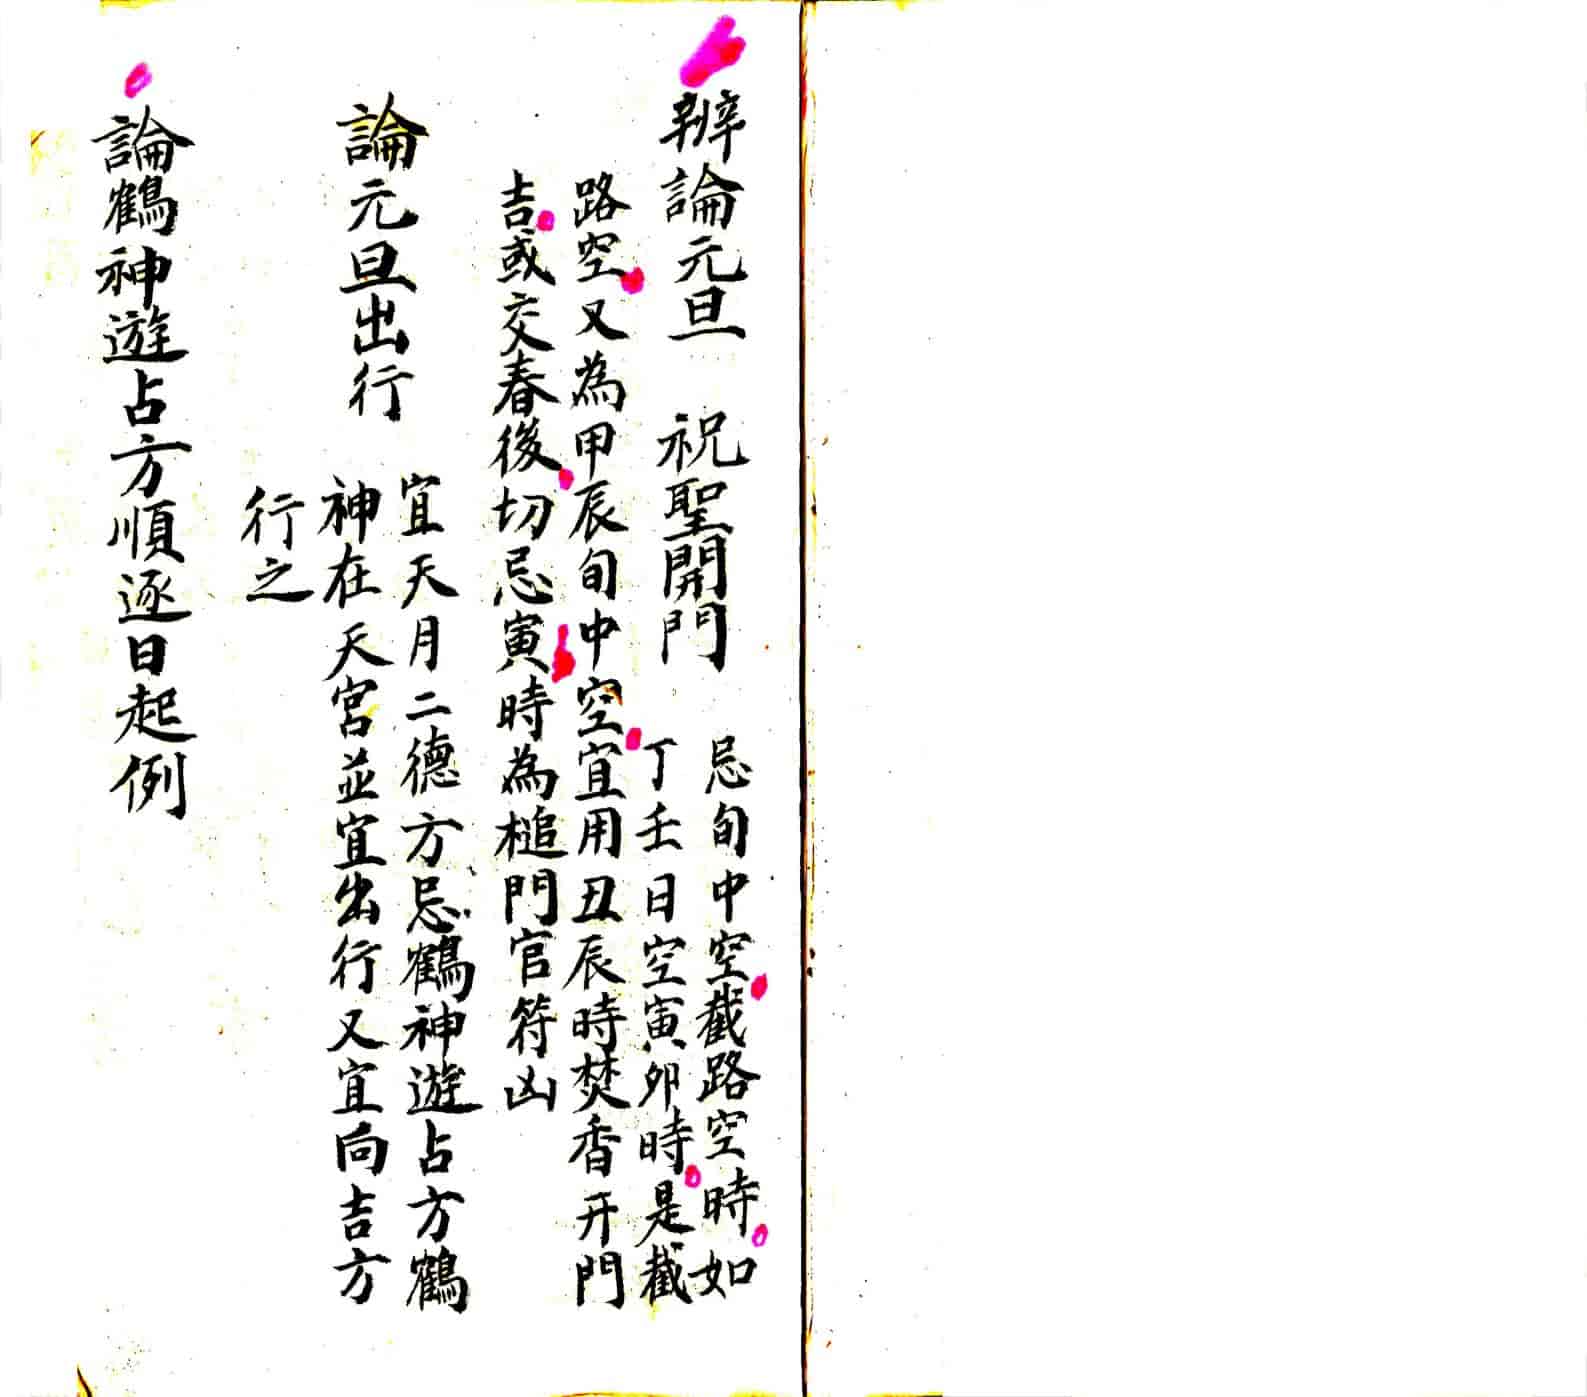 辨論元旦 祝聖開門
忌旬中空截路空時如
丁壬日空寅卯時是截
路空又為甲辰旬中空宜用丑辰時焚香开門
吉或交春後切忌寅時為槌門官符凶
論元旦出行
宜天月二德方忌鶴神遊占方鶴
神在天宮並宜出行又宜向吉方
行之
論鶴神遊占方順逐日起例